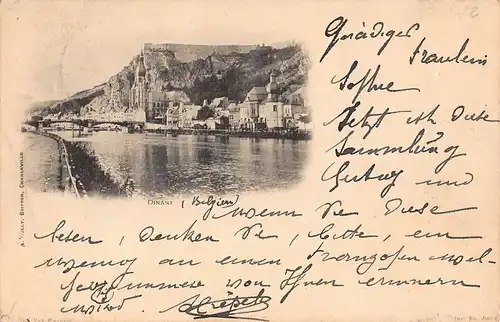 Gnädiger
Fräulein
Sophie
Jetzt ist diese
Sammlung
gut und
DINANT (Belgien)
Wenn Sie diese
lesen, denken Sie, bitte, ein
wenig an einen Franzosen wel-
immer von Ihnen erinnern
wird.
A. VIALLY, EDITEUR, CHARLEVILLE